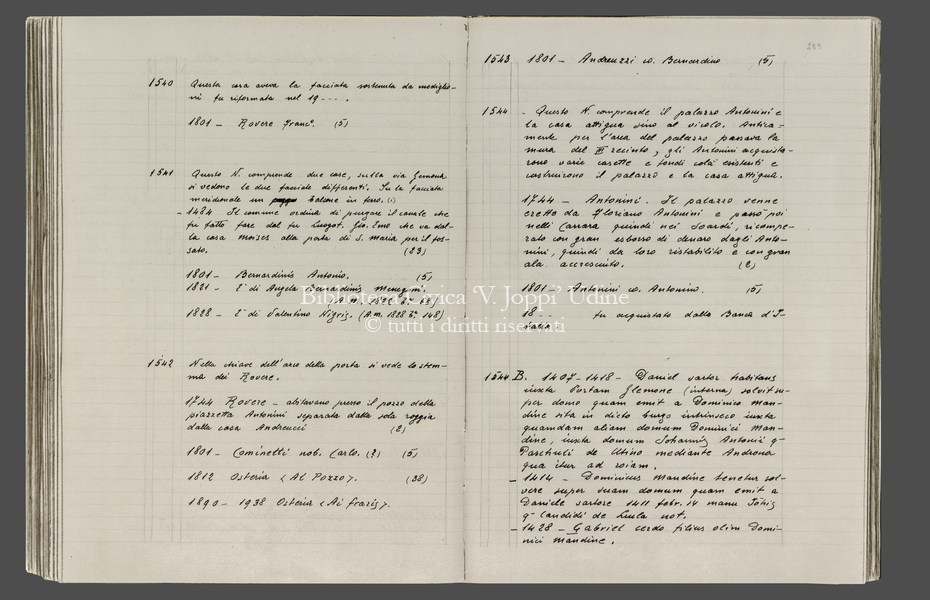 1540 Questa casa aveva la facciata sostenuta da modiglio-
ni fu riformata nel 19 - - - .
1801 - Rovere Franc°. (5)
1541 Questo N. comprende due case, sulla via Gemona
si vedono le due facciate differenti. Su la facciata
meridionale un balcone in ferro. (1)
- 1484 Il comune ordina di purgare il canale che
fu fatto fare dal fu Luogot. Gio. Emo che va dal-
la casa Moises alla porta di S. Maria per il fos-
sato. (23)
1801 - Bernardinis Antonio. (5)
1821 - E' di Angela Bernardinis Menegoni.
1828 - E' di Valentino Nigris. (A.m. 1828 148)
1542 Nella chiave dell'arco della porta si vede lo stem-
ma dei Rovere.
1744 Rovere - abitavano presso il pozzo della
piazzetta Antonini separata dalla sola roggia
dalla casa Andreucci (2)
1801 - Cominelli nob. Carlo. (?) (5)
1812 Osteria <Al Pozzo>. (38)
1890 - 1938 Osteria <Ai Frariş>.
203
1543 1801 - Andreuzzi co. Bernardino (5)
1544 - Questo N. comprende il palazzo Antonini e
la casa attigua sino al vicolo. Antica-
mente per l'area del palazzo passava la
mura del III recinto, gli Antonini acquista-
rono varie casette e fondi colà esistenti e
costruirono il palazzo e la casa attigua.
1744 - Antonini. Il palazzo venne
eretto da Floriano Antonini e passò poi
nelli Carrara quindi nei Soardi, ricompe-
rato con gran esborso di denaro dagli Anto-
nini, quindi da loro ristabilito e con gran
ala accresciuto. (2)
1801 - Antonini co. Antonino. (5)
18 - - fu acquistato dalla Banca d'I-
talia.
1544 B. 1407 - 1418 - Daniel sartor habitans
iuxta Portam Glemone (interna) solvit su-
per domo quam emit a Dominico Man-
dine sita in dicto burgo intrinseco iuxta
quamdam aliam domum Dominici Man-
dine, iuxta domum Johannis Antonii q-
Paschuli de Utino mediante Androna
qua itur ad roiam.
- 1414 - Dominicus Mandine tenetur sol-
vere super suam domum quam emit a
Daniele sartore 1411 febr. 14 manu Johis
q- Candidi de Luila not.
- 1428 - Gabriel cerdo filius olim Domi-
nici Mandine.
Biblioteca Civica 'V. Joppi' Udine
© tutti i diritti riservati